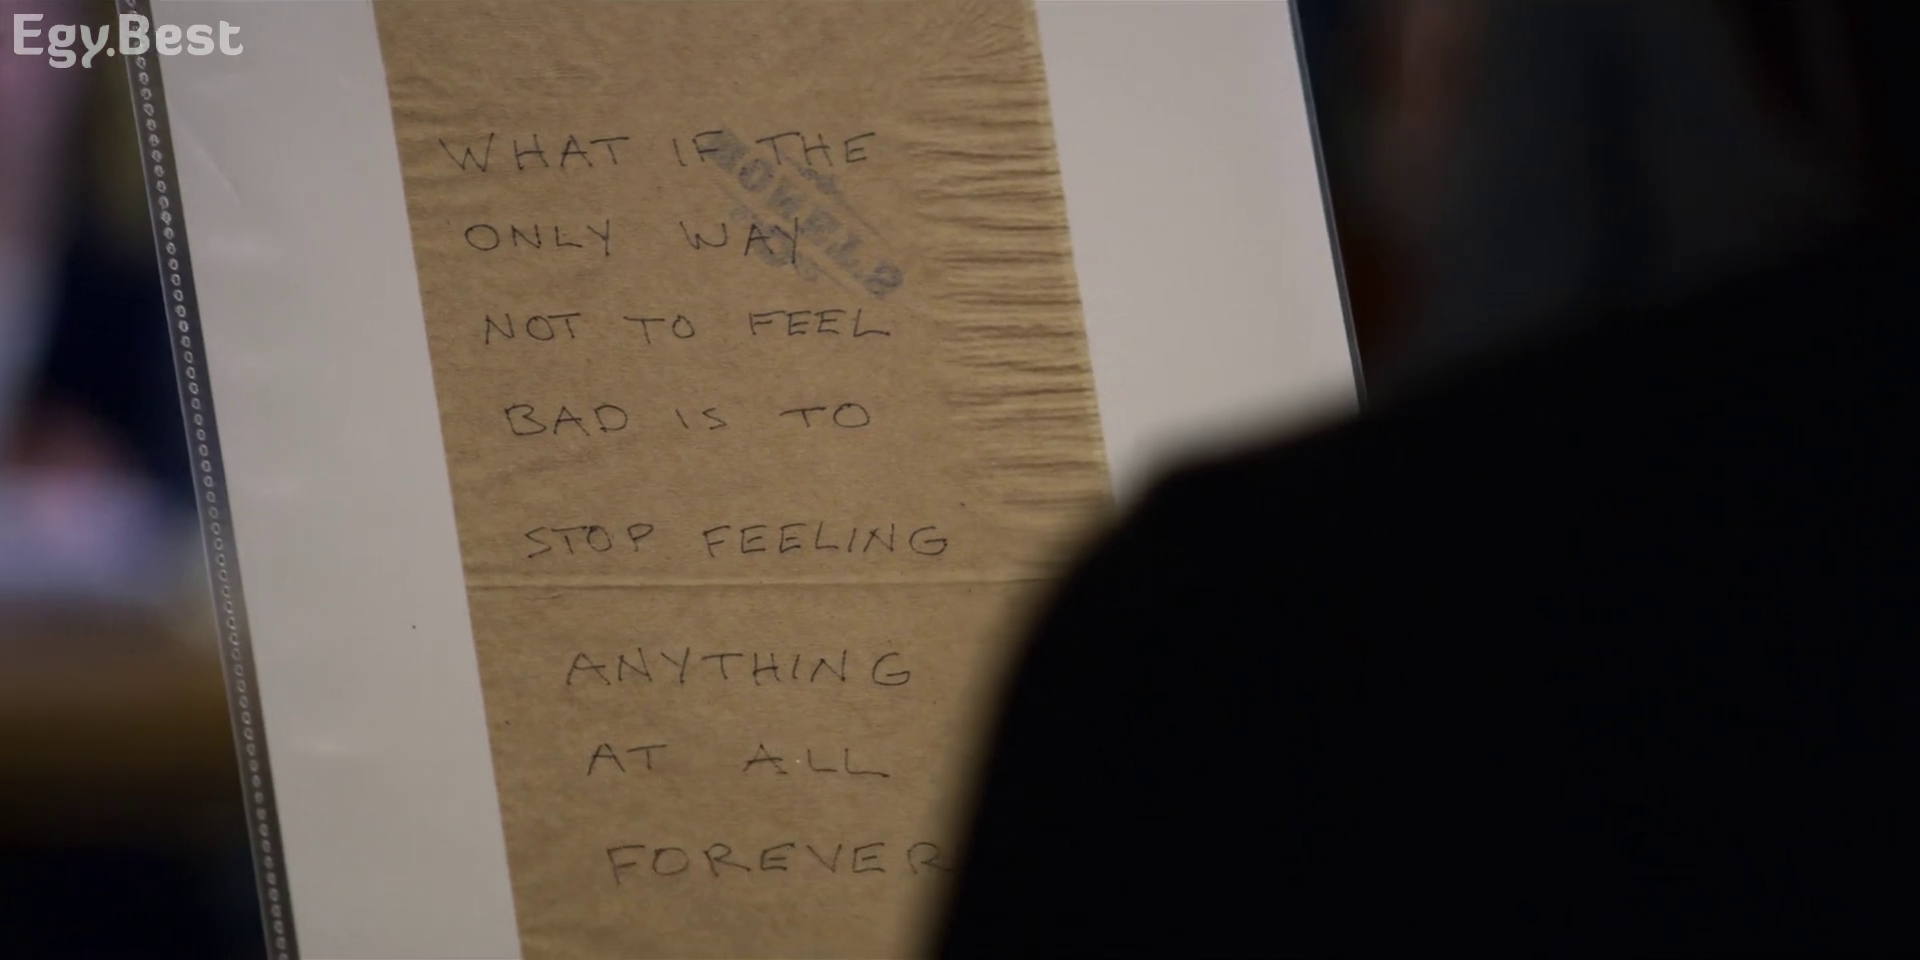 Egy.Best
WHAT IF THE
ONLY WAY
NOT TO FEEL
BAD IS TO
STOP FEELING
ANYTHING
AT ALL
FOREVER